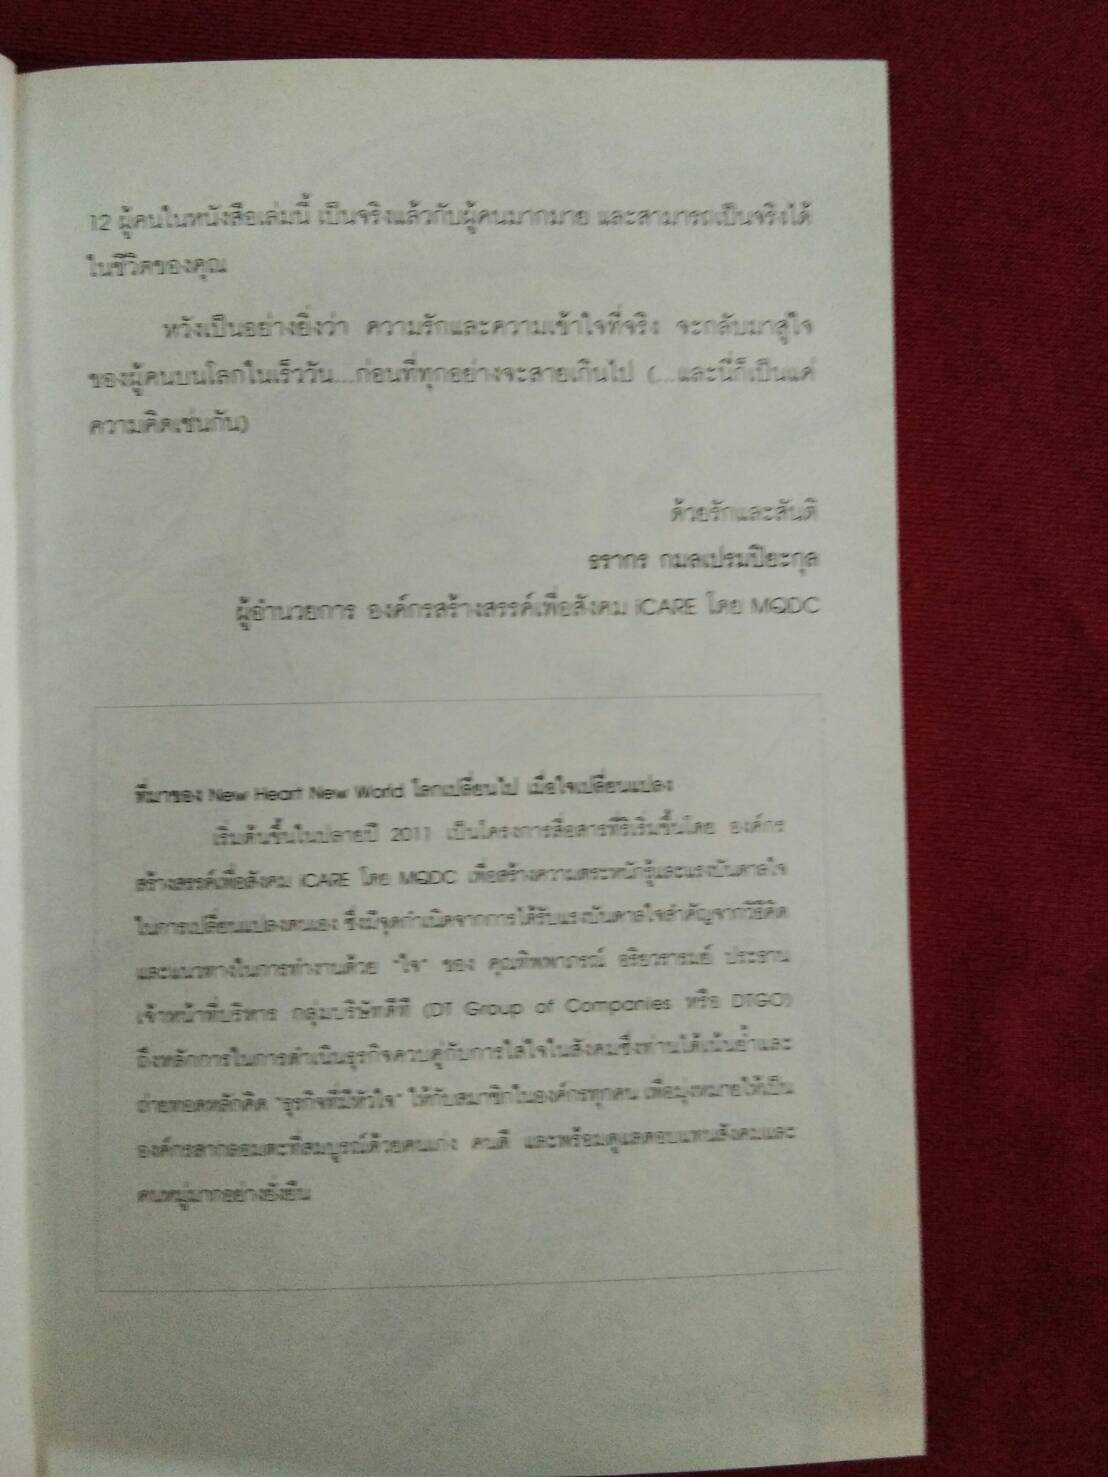 12 ผู้คนในหนังสือเล่มนี้ เป็นจริงแล้วกับผู้คนมากมาย และสามารถเป็นจริงได้
ในชีวิตของคุณ
หวังเป็นอย่างยิ่งว่า ความรักและความเข้าใจที่จริง จะกลับมาสู่ใจ
ของผู้คนบนโลกในเร็ววัน...ก่อนที่ทุกอย่างจะสายเกินไป (...และนี่ก็เป็นแค่
ความคิดเช่นกัน)
ด้วยรักและสันติ
ธรากร กมลเปรมปิยะกุล
ผู้อำนวยการ องค์กรสร้างสรรค์เพื่อสังคม iCARE โดย MQDC
ที่มาของ New Heart New World โลกเปลี่ยนไป เมื่อใจเปลี่ยนแปลง
เริ่มต้นขึ้นในปลายปี 2011 เป็นโครงการสื่อสารที่ริเริ่มขึ้นโดย องค์กร
สร้างสรรค์เพื่อสังคม iCARE โดย MQDC เพื่อสร้างความตระหนักรู้และแรงบันดาลใจ
ในการเปลี่ยนแปลงตนเอง ซึ่งมีจุดกำเนิดจากการได้รับแรงบันดาลใจสำคัญจากวิธีคิด
และแนวทางในการทำงานด้วย "ใจ" ของ คุณทิพพาภรณ์ อริยวรารมย์ ประธาน
เจ้าหน้าที่บริหาร กลุ่มบริษัทดีที (DT Group of Companies หรือ DTGO)
ถึงหลักการในการดำเนินธุรกิจควบคู่กับการใส่ใจในสังคมซึ่งท่านได้เน้นย้ำและ
ถ่ายทอดหลักคิด "ธุรกิจที่มีหัวใจ" ให้กับสมาชิกในองค์กรทุกคน เพื่อมุ่งหมายให้เป็น
องค์กรสากลอมตะที่สมบูรณ์ด้วยคนเก่ง คนดี และพร้อมดูแลตอบแทนสังคมและ
คนหมู่มากอย่างยั่งยืน